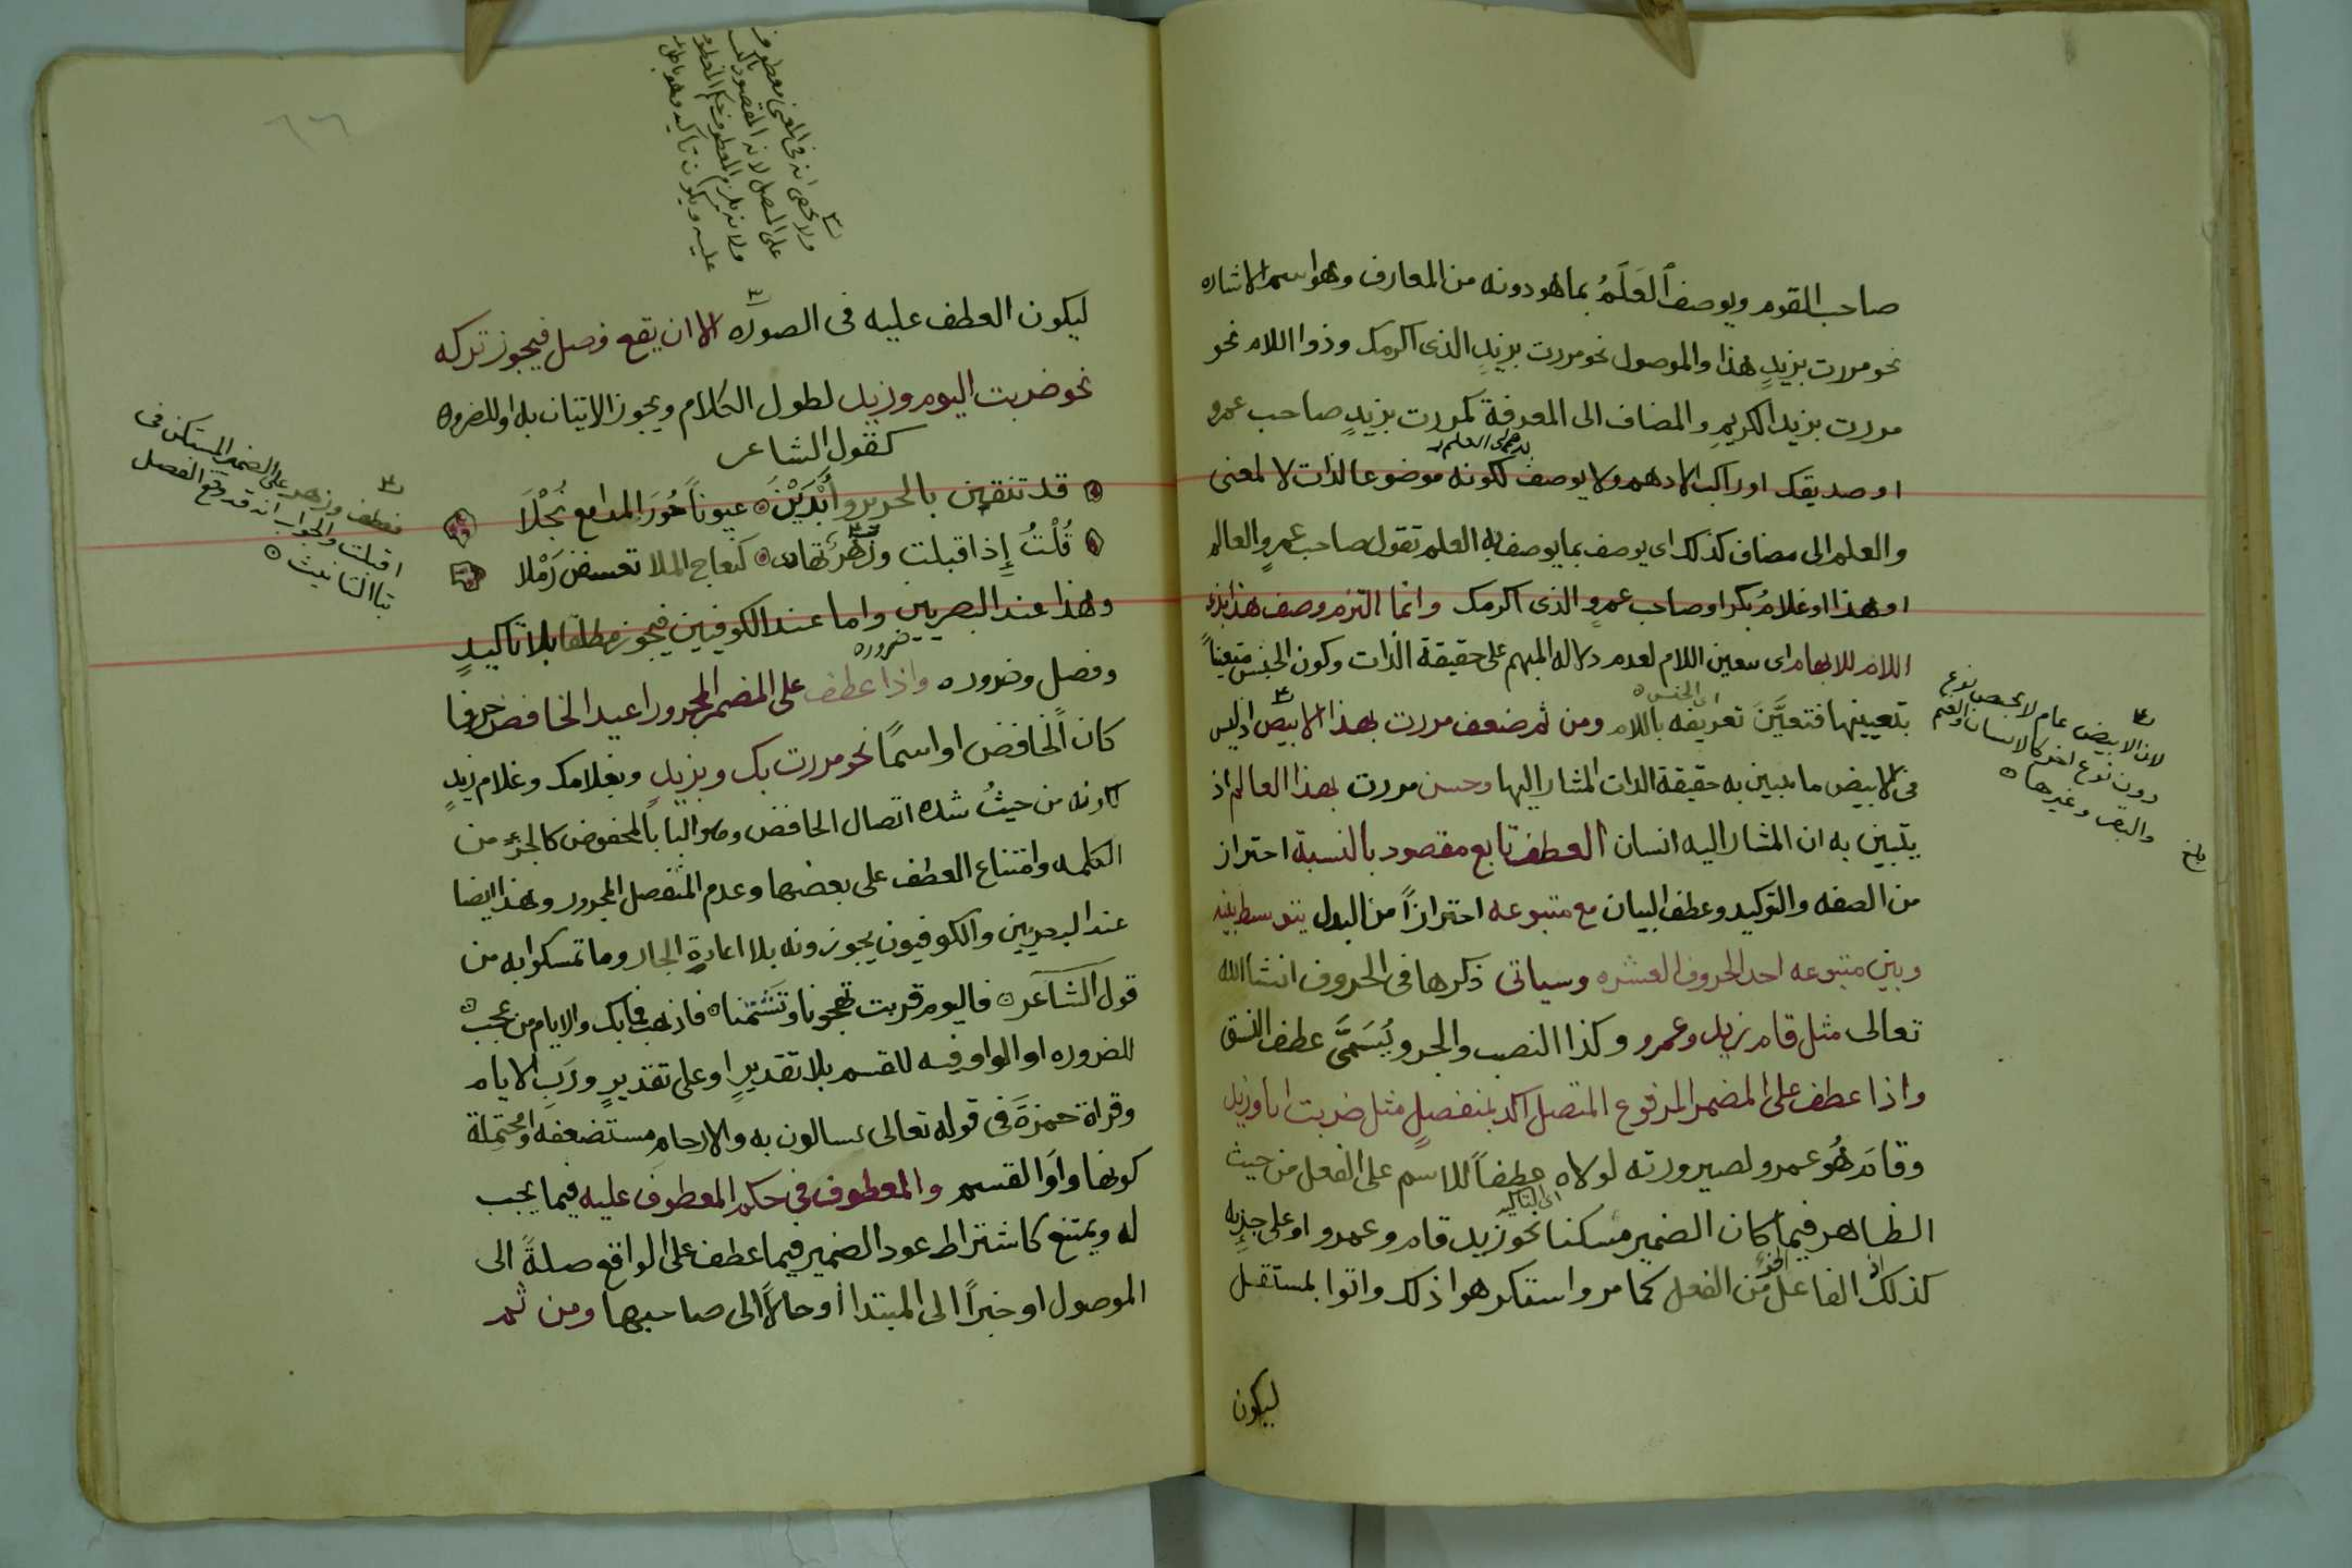 صاحب القوم ويوصف العَلَمُ بما هو دونه من المعارف وهو اسم الاشاره
نحو مررت بزيدٍ هذا والموصول نحو مررت بزيدٍ الذى اكرمك وذو اللام نحو
مررت بزيد الكريمِ والمضاف الى المعرفة كمررت بزيدٍ صاحب عمرو
او صديقك او راكب الادهم ولا يوصف لكونه موضوعا لذات لا لمعنى
والعلم الى مضاف كذلك اى يوصف بما يوصف به العلم تقول صاحب عمرٍو العالم
او هذا او غلامُ بكر او صاحب عمرٍو الذى اكرمك وانما التزم وصف هذا بذى
اللام للابهام اى بتعين اللام لعدم دلاله المبهم على حقيقة الذات وكون الجنس متعيناً
اى الجنس
بتعيينها فتعيَّنَ تعريفه باللام ومن ثم ضعف مررت بهذا الابيض اذ ليس
فى الابيض ما يتبين به حقيقة الذات المشار اليها وحسن مررت بهذا العالم اذ
يتبين به ان المشار اليه انسان العطف تابع مقصود بالنسبة احتراز
من الصفه والتوكيد وعطف البيان مع متبوعه احترازاً من البدل يتوسط بينه
وبين متبوعه احد الحروف العشره وسياتى ذكرها فى الحروف انشا الله
تعالى مثل قام زيد وعمرو وكذا النصب والجر ويُسَمَّى عطف النسق
واذا عطف على المضمر المرفوع المتصل اكد بمنفصلٍ مثل ضربت انا وزيد
وقام هُو عمرو لصيرورته لولاه عطفاً للاسم على الفعل من حيث
اى التاكيد
الظاهر فيما كان الضمير مسكنا نحو زيد قام وعمرو او على جزئه
كذلك اذ الفاعل من الفعل كما مر واستكرهوا ذلك واتوا بمستقل
ليكون
لان الابيض عام لا يختص بنوع
دون نوع اخر كالانسان والغنم
والبقر وغيرها
ليكون العطف عليه فى الصوره الا ان يقع فصل فيجوز تركه
نحو ضربت اليوم وزيد لطول الكلام ويجوز الاتيان به او للضروره
كقول الشاعر
قد تنقبن بالحرير وأَبْدَيْنَ عيوناً حُورَ المدامع نُجْلَا
قُلْتُ إِذ اقبلت وزهرٌ تهادى كنعاج الملا تعسفن رَمْلا
وهذا عند البصريين واما عند الكوفيين فيجوز مطلقا بلا تاكيدٍ
وفصل وضروره واذا عطف على المضمر المجرور اعيد الخافض حرفا
كان الخافض او اسمًا نحو مررت بك وبزيدٍ وبغلامك وغلام زيدٍ
لكونه من حيثُ شده اتصال الخافض بالمخفوض كالجزءِ من
الكلمه وامتناع العطف على بعضها وعدم المنفصل المجرور وهذا ايضا
عند البصريين والكوفيون يجوزونه بلا اعادةِ الجار وما تمسكوا به من
قول الشاعر فاليوم قربت تهجونا وتَشْتمُنا فاذهب فما بك والايام من عجب
للضروره او الواو فيه للقسم بلا تقديرٍ او على تقديرٍ ورَبِ الايام
وقراة حمزةَ فى قوله تعالى تسالون به والارحامِ مستضعفَه او محُتمِلة
كونها واوَ القسم والمعطوف فى حكم المعطوف عليه فيما يجب
له ويمتنع كاشتراط عود الضمير فيما عطف على الواقع صلةً الى
الموصول او خبراً الى المبتدا أو حالاً الى صاحبها ومن ثم
ولا يخفى انه فى المعنى معطوف
على المتصل لانه المقصود
ولانه يلزم المعطوف حكم المعطوف
عليه ويكون تاكيد وهو باطل
فعطف وزهر على الضمير المستكن فى
اقبلت والجواب انه قد وقع الفصل
بتا التانيث